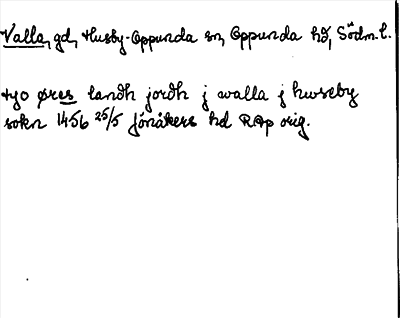 Valla, gd, Husby-Oppunda sn, Oppunda hd, Södm. l.
tyo øres landh jordh j walla j huseby
sokn 1456 25/5 Jönåkers hd RAp orig.